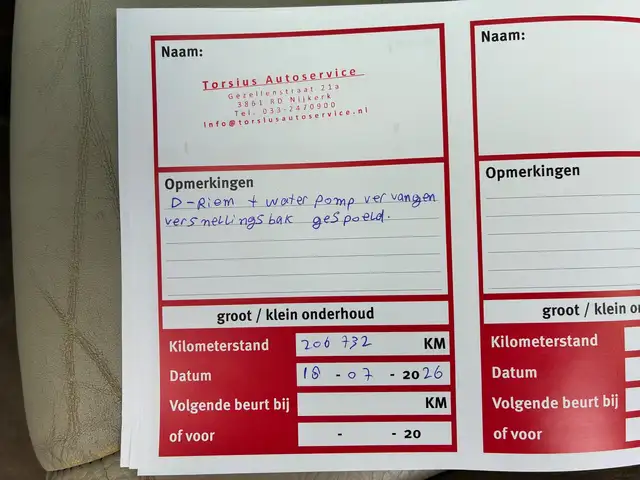 Naam:
Torsius Autoservice
Gezellenstraat 21a
3861 RD Nijkerk
Tel. 033-2470900
info@torsiusautoservice.nl
Opmerkingen
D-Riem + water pomp vervangen
versnellingsbak gespoeld.
groot / klein onderhoud
Kilometerstand 206 732 KM
Datum 18 - 07 - 2026
Volgende beurt bij KM
of voor - - 20
Naam:
Opmerkingen
groot / klein on
Kilometerstand
Datum
Volgende beurt bij
of voor